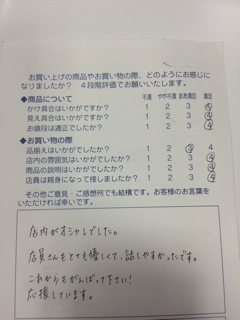 お買い上げの商品やお買い物の際、どのようにお感じに
なりましたか？ ４段階評価でお願いいたします。
◆商品について 不満 やや不満 まあ満足 満足
かけ具合はいかがですか？ 1 2 3 4
見え具合はいかがですか？ 1 2 3 4
お値段は適正でしたか？ 1 2 3 4
◆お買い物の際
品揃えはいかがでしたか？ 1 2 3 4
店内の雰囲気はいかがでしたか？ 1 2 3 4
商品の説明はいかがでしたか？ 1 2 3 4
店員は親身になって接しましたか？ 1 2 3 4
その他ご意見・ご感想何でも結構です。お客様のお言葉を
いただければ幸いです。
店内がオシャレでした。
店員さんもとても優しくて、話しやすかったです。
これからもがんばって下さい！
応援しています。